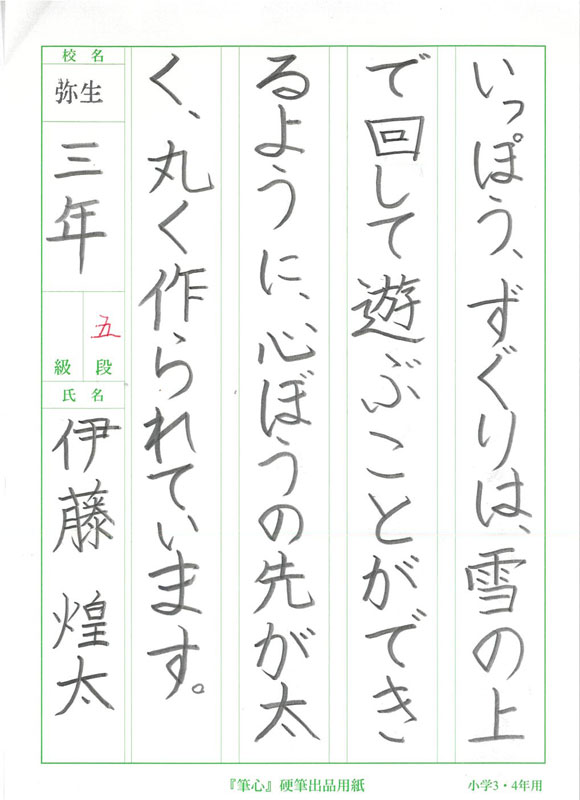 いっぽう、ずぐりは、雪の上
で回して遊ぶことができ
るように、心ぼうの先が太
く、丸く作られています。
校名
弥生
三年
五
段
級
氏名
伊藤 煌太
『筆心』硬筆出品用紙
小学3・4年用